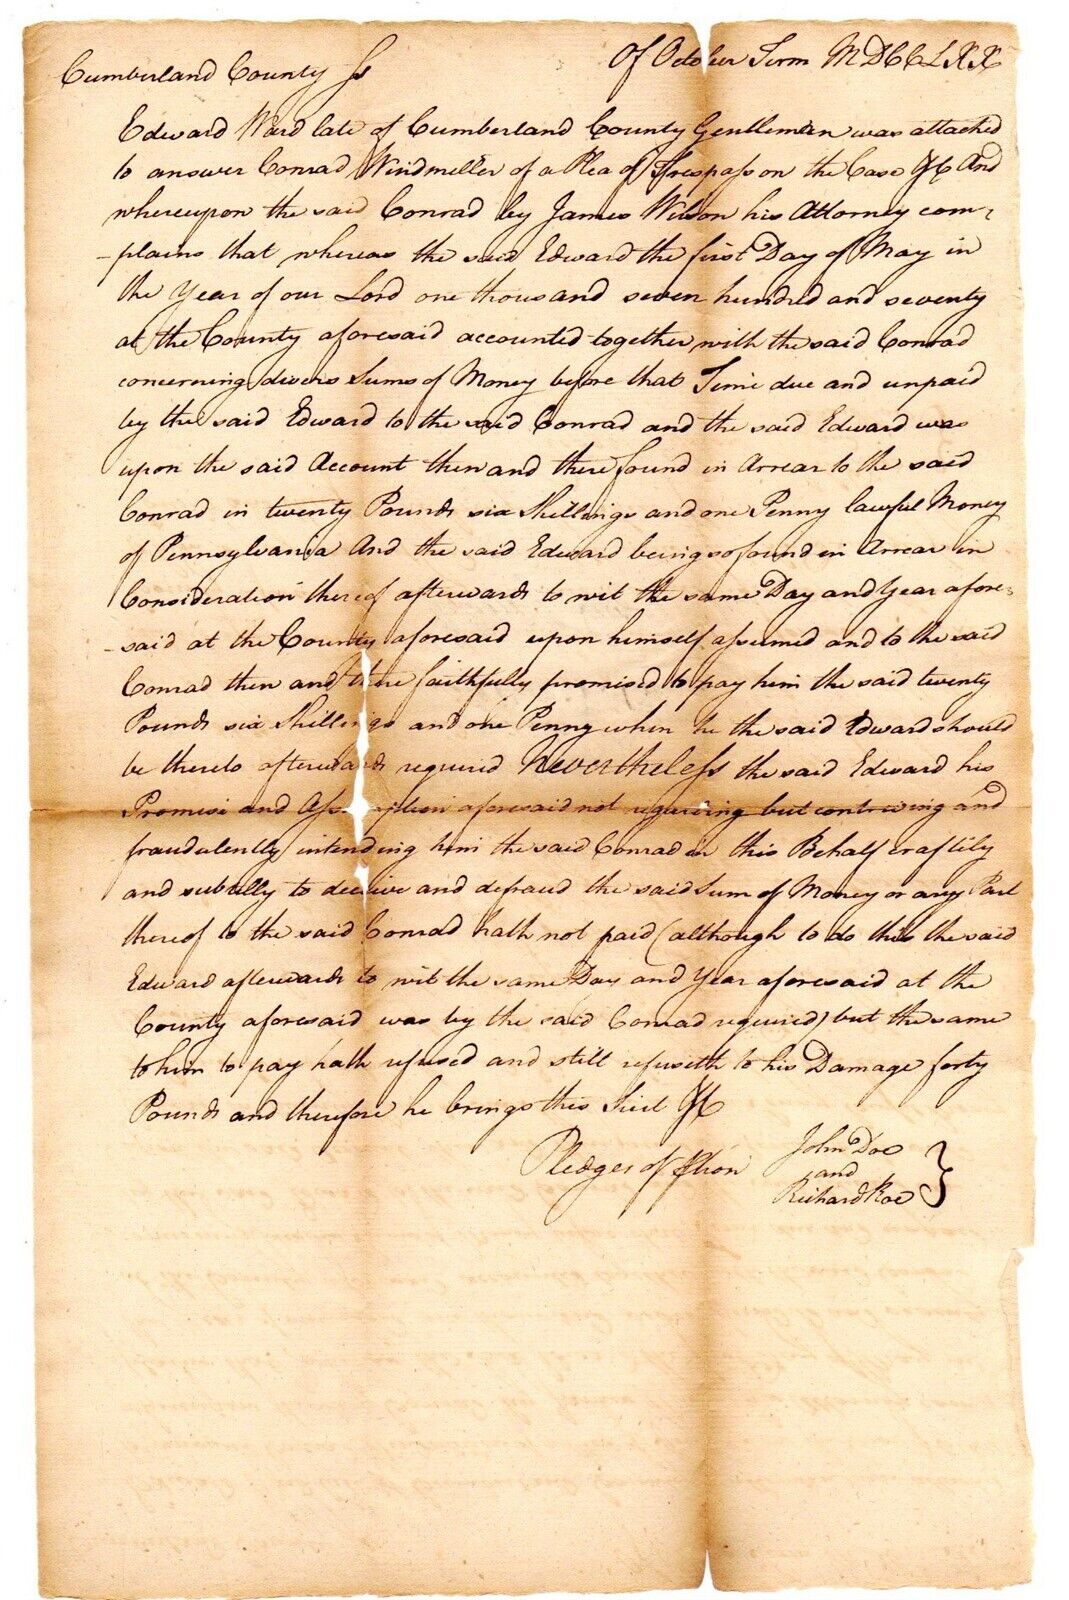 Cumberland County Ss
Of October Term MDCCLXX
Edward Ward late of Cumberland County Gentleman was attached
to answer Conrad Windmiller of a Plea of Trespass on the Case &c And
whereupon the said Conrad by James Wilson his Attorney com-
-plains that whereas the said Edward the first Day of May in
the Year of our Lord one thousand seven hundred and seventy
at the County aforesaid accounted together with the said Conrad
concerning divers Sums of Money before that Time due and unpaid
by the said Edward to the said Conrad and the said Edward was
upon the said Account then and there found in Arrear to the said
Conrad in twenty Pounds six Shillings and one Penny lawful Money
of Pennsylvania And the said Edward being so found in Arrear in
Consideration thereof afterwards to wit the same Day and Year afore-
-said at the County aforesaid upon himself assumed and to the said
Conrad then and there faithfully promised to pay him the said twenty
Pounds six Shillings and one Penny when he the said Edward should
be thereto afterwards required Nevertheless the said Edward his
Promise and Assumption aforesaid not regarding but contriving and
fraudulently intending him the said Conrad in this Behalf craftily
and subtilly to deceive and defraud the said Sum of Money or any Part
thereof to the said Conrad hath not paid (although to do this the said
Edward afterwards to wit the same Day and Year aforesaid at the
County aforesaid was by the said Conrad required) but the same
to him to pay hath refused and still refuseth to his Damage forty
Pounds and therefore he brings this Suit &c
Pledges of
John Doe
and
Richard Roe }